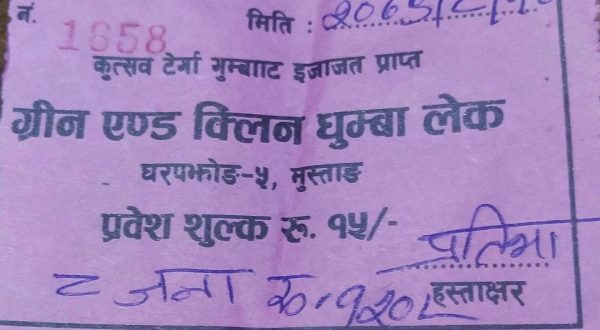 नं. 1658 मिति :
कुत्सव टेर्गा गुम्बााट इजाजत प्राप्त
ग्रीन एण्ड क्लिन धुम्बा लेक
घरपझोङ-५, मुस्ताङ
प्रवेश शुल्क रु. १५/-
प्रतिभा
८ जना रु. १२०/- हस्ताक्षर